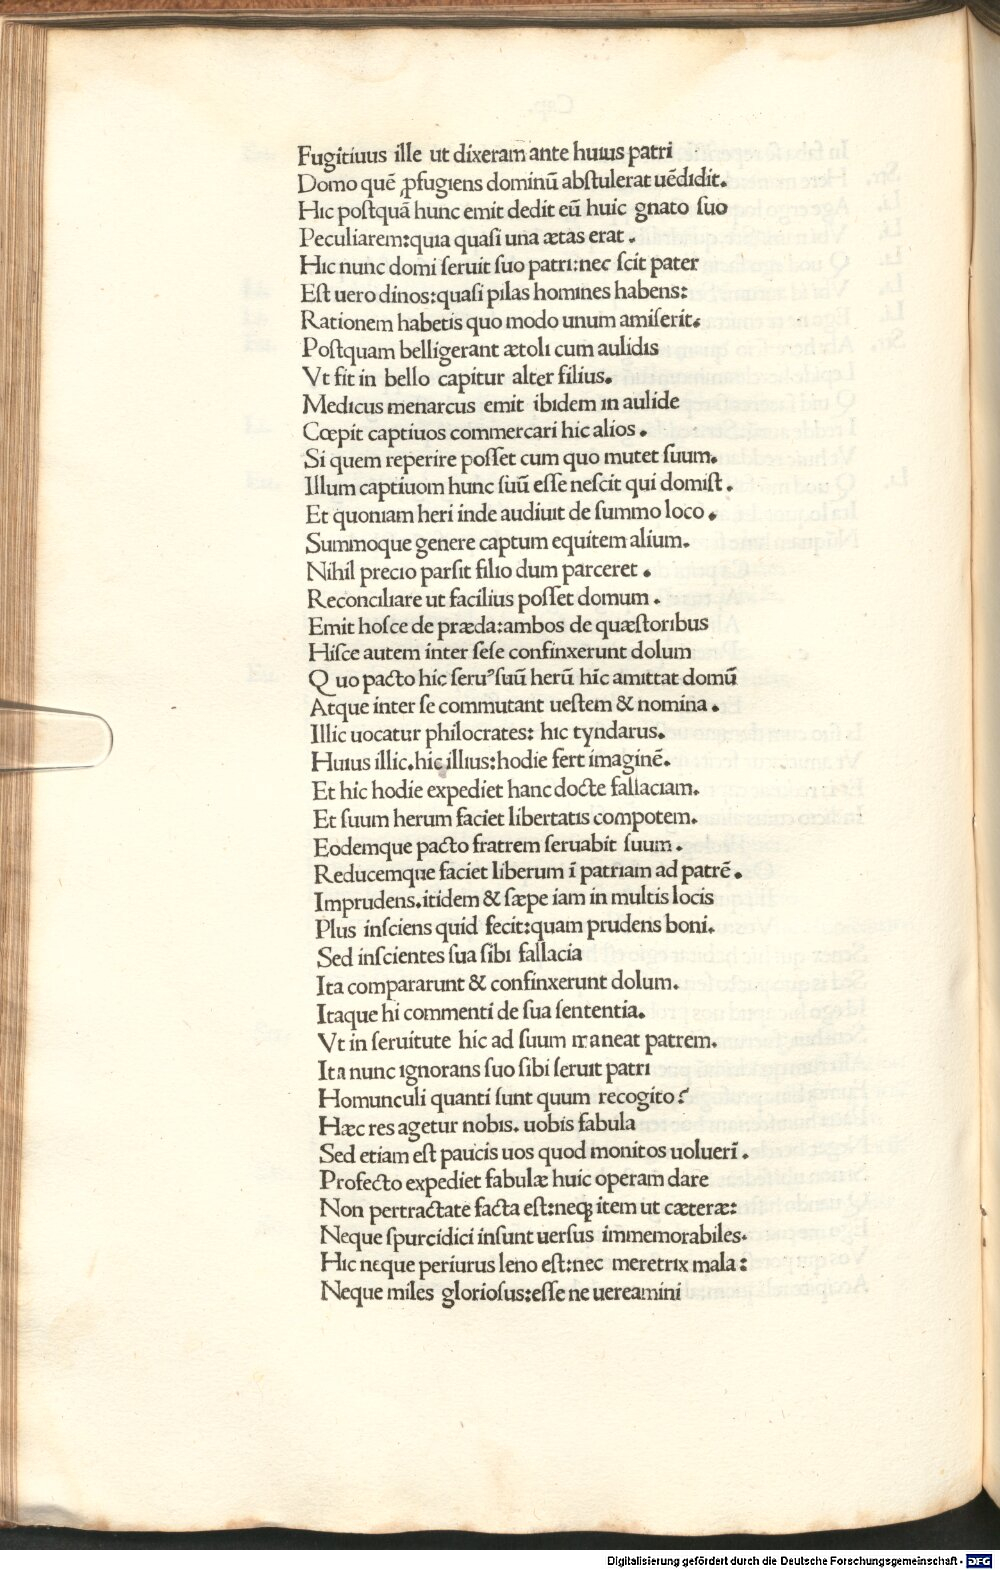 Fugitiuus ille ut dixeram ante huius patri
Domo quē ꝓfugiens dominū abſtulerat uēdidit.
Hic poſtquā hunc emit dedit eū huic gnato ſuo
Peculiarem:quia quaſi una ætas erat.
Hic nunc domi ſeruit ſuo patri:nec ſcit pater
Eſt uero dinos:quaſi pilas homines habens:
Rationem habetis quo modo unum amiſerit.
Poſtquam belligerant ætoli cum aulidis
Vt fit in bello capitur alter filius.
Medicus menarcus emit ibidem in aulide
Cœpit captiuos commercari hic alios.
Si quem reperire poſſet cum quo mutet ſuum.
Illum captiuom hunc ſuū eſſe neſcit qui domiſt.
Et quoniam heri inde audiuit de ſummo loco.
Summoque genere captum equitem alium.
Nihil precio parſit filio dum parceret.
Reconciliare ut facilius poſſet domum.
Emit hoſce de præda:ambos de quæſtoribus
Hiſce autem inter ſeſe confinxerunt dolum
Quo pacto hic ſeruꝰ ſuū herū hic amittat domū
Atque inter ſe commutant ueſtem & nomina.
Illic uocatur philocrates: hic tyndarus.
Huius illic.hic illius:hodie fert imaginē.
Et hic hodie expediet hanc docte fallaciam.
Et ſuum herum faciet libertatis compotem.
Eodemque pacto fratrem ſeruabit ſuum.
Reducemque faciet liberum ī patriam ad patrē.
Imprudens.itidem & ſæpe iam in multis locis
Plus inſciens quid fecit:quam prudens boni.
Sed inſcientes ſua ſibi fallacia
Ita compararunt & confinxerunt dolum.
Itaque hi commentī de ſua ſententia.
Vt in ſeruitute hic ad ſuum maneat patrem.
Ita nunc ignorans ſuo ſibi ſeruit patri
Homunculi quanti ſunt quum recogito?
Hæc res agetur nobis. uobis fabula
Sed etiam eſt paucis uos quod monitos uoluerī.
Profecto expediet fabulæ huic operam dare
Non pertractate facta eſt:neqꝫ item ut cæteræ:
Neque ſpurcidici inſunt uerſus immemorabiles.
Hic neque periurus leno eſt:nec meretrix mala:
Neque miles glorioſus:eſſe ne uereamini
Digitalisierung gefördert durch die Deutsche Forschungsgemeinschaft - DFG